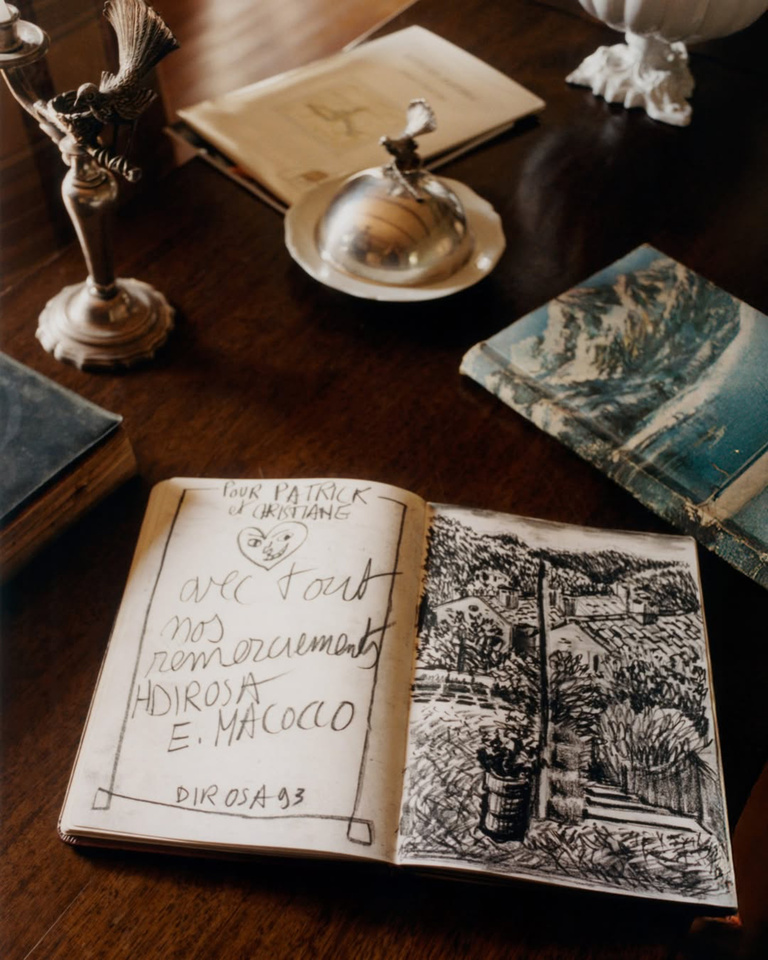 POUR PATRICK
et CHRISTIANE
avec tout
nos
remerciements
HDIROSA
E. MACOCCO
DIROSA 93